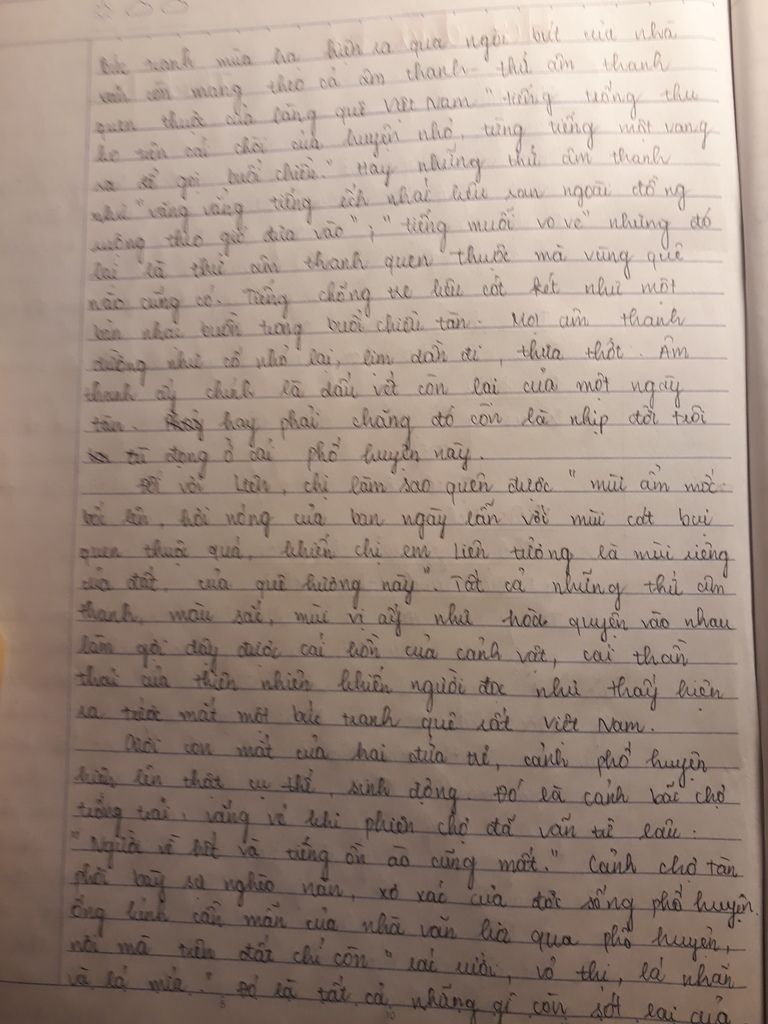 Bức tranh mùa hạ hiện ra qua ngòi bút của nhà
văn còn mang theo cả âm thanh - thứ âm thanh
quen thuộc của làng quê Việt Nam "tiếng trống thu
không trên cái chòi của huyện nhỏ, từng tiếng một vang
ra để gọi buổi chiều." Hay những thứ âm thanh
như "văng vẳng tiếng ếch nhái kêu ran ngoài đồng
ruộng theo gió đưa vào"; "tiếng muỗi vo ve" những đó
lại là thứ âm thanh quen thuộc mà vùng quê
nào cũng có. Tiếng chõng tre kêu cót két như một
bản nhạc buồn trong buổi chiều tàn. Mọi âm thanh
dường như cố nhỏ lại, lìm dần đi, thưa thớt. Âm
thanh ấy chính là dấu vết còn lại của một ngày
tàn. hay phải chăng đó còn là nhịp đời trôi
từ đọng ở cái phố huyện này.
Đối với Liên, chị làm sao quên được "mùi ẩm mốc
bốc lên, hơi nóng của ban ngày lẫn với mùi cát bụi
quen thuộc quá, khiến chị em Liên tưởng là mùi riêng
của đất, của quê hương này". Tất cả những thứ âm
thanh, màu sắc, mùi vị ấy như hòa quyện vào nhau
làm gợi dậy được cái hồn của cảnh vật, cái thần
thái của thiên nhiên khiến người đọc như thấy hiện
ra trước mắt một bức tranh quê rất Việt Nam.
Dưới con mắt của hai đứa trẻ, cảnh phố huyện
hiện lên thật cụ thể, sinh động. Đó là cảnh bãi chợ
trống trải, vắng vẻ khi phiên chợ đã vãn từ lâu.
"Người về hết và tiếng ồn ào cũng mất." Cảnh chợ tàn
phơi bày sự nghèo nàn, xơ xác của đời sống phố huyện.
Ống kính cần mẫn của nhà văn lia qua phố huyện,
nơi mà trên đất chỉ còn "rác rưởi, vỏ thị, lá nhãn
và lá mía." Đó là tất cả những gì còn sót lại của